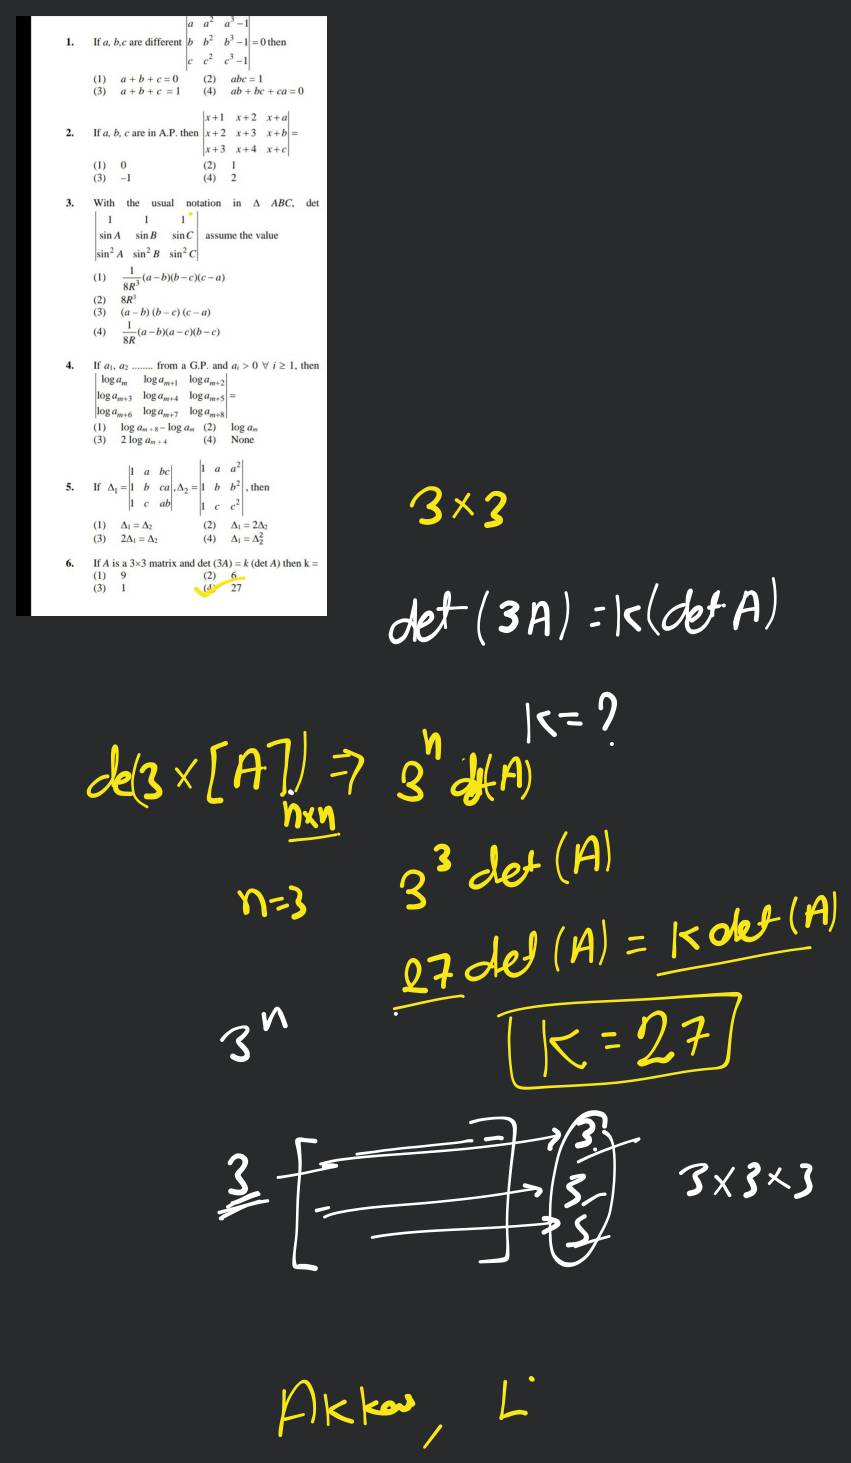 | a a² a³−1 |
1. If a, b,c are different | b b² b³−1 | = 0 then
| c c² c³−1 |
(1) a + b + c = 0 (2) abc = 1
(3) a + b + c = 1 (4) ab + bc + ca = 0
| x+1 x+2 x+a |
2. If a, b, c are in A.P. then | x+2 x+3 x+b | =
| x+3 x+4 x+c |
(1) 0 (2) 1
(3) −1 (4) 2
3. With the usual notation in Δ ABC, det
| 1 1 1 |
| sin A sin B sin C | assume the value
| sin² A sin² B sin² C |
(1) 1/8R³ (a−b)(b−c)(c−a)
(2) 8R³
(3) (a − b) (b − c) (c − a)
(4) 1/8R (a−b)(a−c)(b−c)
4. If a₁, a₂ ........ from a G.P. and aᵢ > 0 ∀ i ≥ 1, then
| log aₘ log aₘ₊₁ log aₘ₊₂ |
| log aₘ₊₃ log aₘ₊₄ log aₘ₊₅ | =
| log aₘ₊₆ log aₘ₊₇ log aₘ₊₈ |
(1) log aₘ₊₈ − log aₘ (2) log aₘ
(3) 2 log aₘ₊₄ (4) None
| 1 a bc | | 1 a a² |
5. If Δ₁ = | 1 b ca | , Δ₂ = | 1 b b² | , then
| 1 c ab | | 1 c c² |
(1) Δ₁ = Δ₂ (2) Δ₁ = 2Δ₂
(3) 2Δ₁ = Δ₂ (4) Δ₁ = Δ₂²
6. If A is a 3×3 matrix and det (3A) = k (det A) then k =
(1) 9 (2) 6
(3) 1 (4) 27
3 × 3
det (3A) = K(det A)
K = ?
de(3 × [A]) ⇒ 3ⁿ det(A)
n×n
n=3 3³ det (A)
27 det (A) = K det (A)
3ⁿ
K = 27
3
3
3 3 3×3×3
3